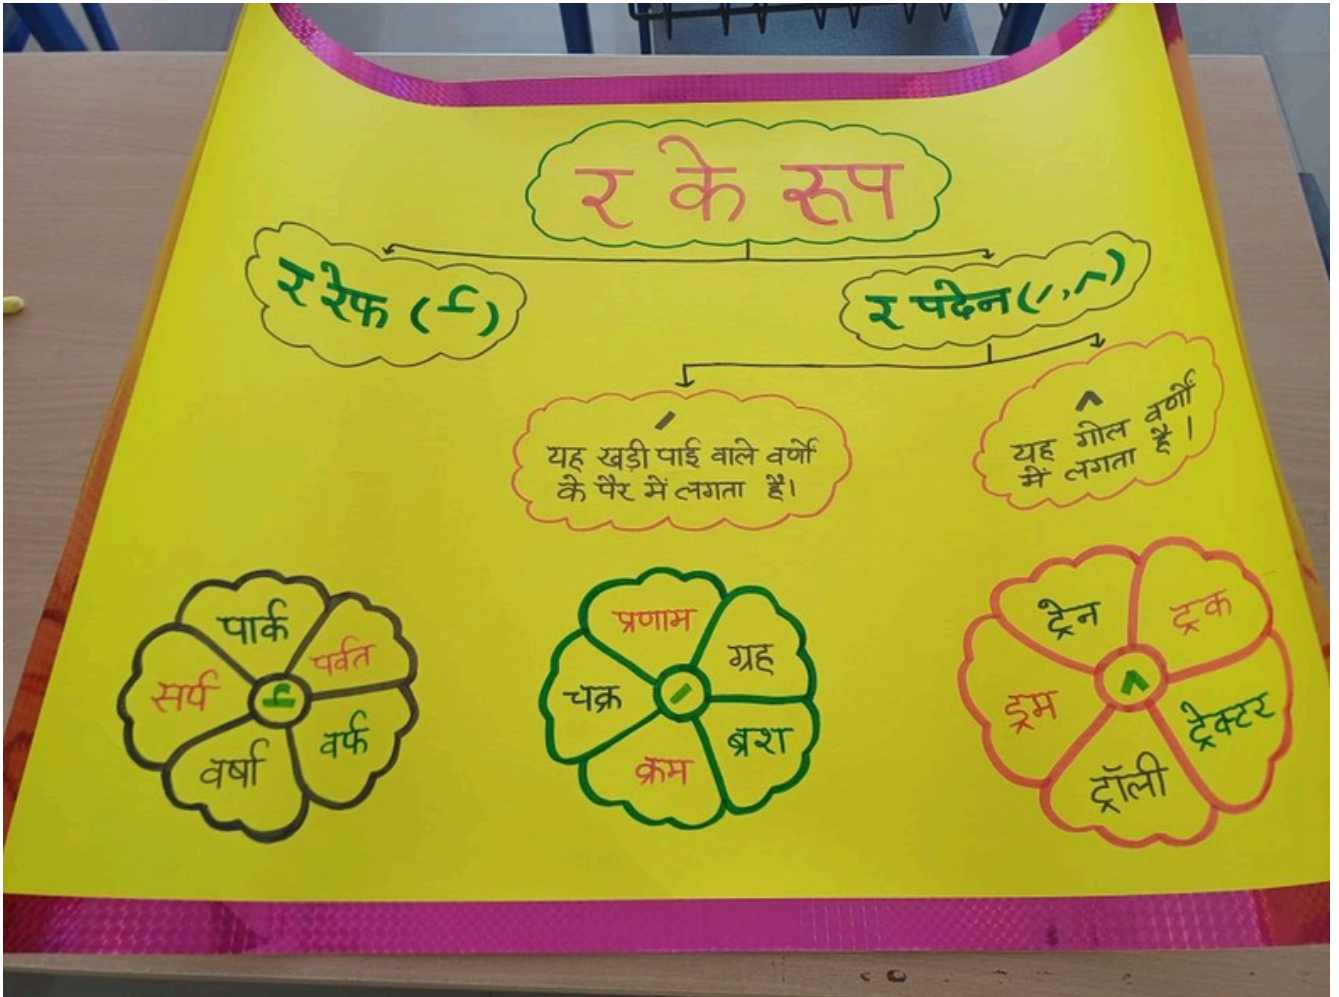 र के रूप
र रेफ (र्)
र पदेन (्र , ^)
्र
यह खड़ी पाई वाले वर्णों
के पैर में लगता है।
^
यह गोल वर्णों
में लगता है।
पार्क
पर्वत
वर्फ
वर्षा
सर्प
र्
प्रणाम
ग्रह
ब्रश
क्रम
चक्र
्र
ट्रेन
ट्रक
ट्रेक्टर
ट्रॉली
ड्रम
^